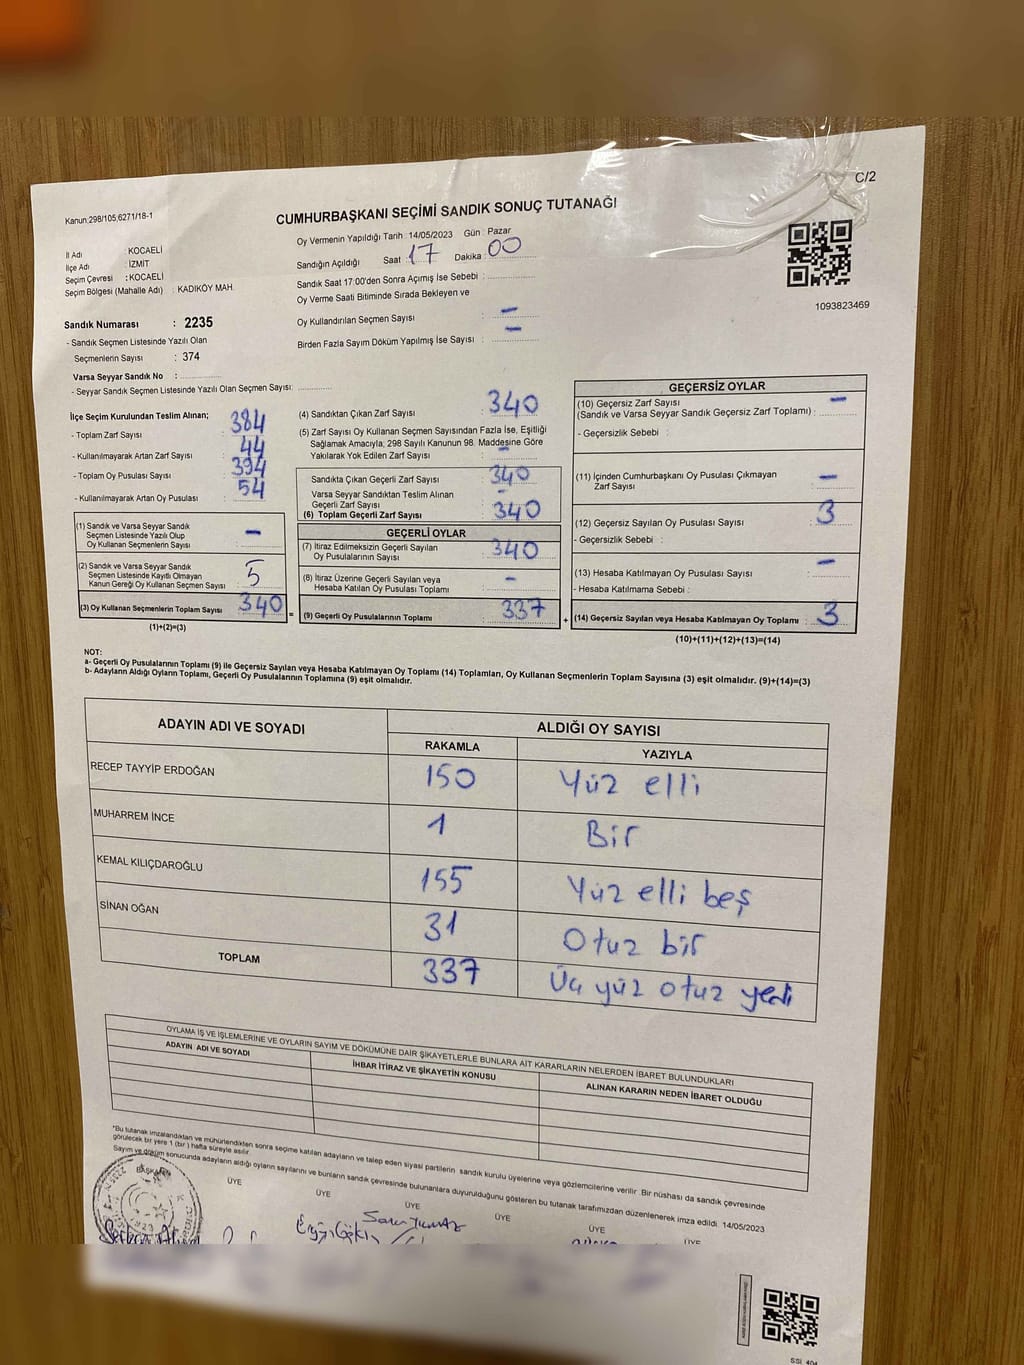 C/2
Kanun:298/105,6271/18-1
CUMHURBAŞKANI SEÇİMİ SANDIK SONUÇ TUTANAĞI
İl Adı : KOCAELİ
İlçe Adı : İZMİT
Seçim Çevresi : KOCAELİ
Seçim Bölgesi (Mahalle Adı) : KADIKÖY MAH.
Oy Vermenin Yapıldığı Tarih : 14/05/2023 Gün : Pazar
Sandığın Açıldığı Saat : 17 Dakika : 00
Sandık Saat 17:00'den Sonra Açımış İse Sebebi :
Oy Verme Saati Bitiminde Sırada Bekleyen ve
Oy Kullandırılan Seçmen Sayısı : -
Birden Fazla Sayım Döküm Yapılmış İse Sayısı : -
1093823469
Sandık Numarası : 2235
- Sandık Seçmen Listesinde Yazılı Olan
Seçmenlerin Sayısı : 374
Varsa Seyyar Sandık No :
- Seyyar Sandık Seçmen Listesinde Yazılı Olan Seçmen Sayısı:
İlçe Seçim Kurulundan Teslim Alınan;
- Toplam Zarf Sayısı : 384
- Kullanılmayarak Artan Zarf Sayısı : 44
- Toplam Oy Pusulası Sayısı : 394
- Kullanılmayarak Artan Oy Pusulası : 54
(1) Sandık ve Varsa Seyyar Sandık
Seçmen Listesinde Yazılı Olup
Oy Kullanan Seçmenlerin Sayısı : -
(2) Sandık ve Varsa Seyyar Sandık
Seçmen Listesinde Kayıtlı Olmayan
Kanun Gereği Oy Kullanan Seçmen Sayısı : 5
(3) Oy Kullanan Seçmenlerin Toplam Sayısı : 340 =
(1)+(2)=(3)
(4) Sandıktan Çıkan Zarf Sayısı : 340
(5) Zarf Sayısı Oy Kullanan Seçmen Sayısından Fazla İse, Eşitliği
Sağlamak Amacıyla, 298 Sayılı Kanunun 98. Maddesine Göre
Yakılarak Yok Edilen Zarf Sayısı : -
Sandıkta Çıkan Geçerli Zarf Sayısı : 340
Varsa Seyyar Sandıktan Teslim Alınan
Geçerli Zarf Sayısı : -
(6) Toplam Geçerli Zarf Sayısı : 340
GEÇERLİ OYLAR
(7) İtiraz Edilmeksizin Geçerli Sayılan
Oy Pusulalarının Sayısı : 340
(8) İtiraz Üzerine Geçerli Sayılan veya
Hesaba Katılan Oy Pusulası Toplamı : -
(9) Geçerli Oy Pusulalarının Toplamı : 337 +
GEÇERSİZ OYLAR
(10) Geçersiz Zarf Sayısı
(Sandık ve Varsa Seyyar Sandık Geçersiz Zarf Toplamı) : -
- Geçersizlik Sebebi :
(11) İçinden Cumhurbaşkanı Oy Pusulası Çıkmayan
Zarf Sayısı : -
(12) Geçersiz Sayılan Oy Pusulası Sayısı : 3
- Geçersizlik Sebebi :
(13) Hesaba Katılmayan Oy Pusulası Sayısı : -
- Hesaba Katılmama Sebebi :
(14) Geçersiz Sayılan veya Hesaba Katılmayan Oy Toplamı : 3
(10)+(11)+(12)+(13)=(14)
NOT:
a- Geçerli Oy Pusulalarının Toplamı (9) ile Geçersiz Sayılan veya Hesaba Katılmayan Oy Toplamı (14) Toplamları, Oy Kullanan Seçmenlerin Toplam Sayısına (3) eşit olmalıdır. (9)+(14)=(3)
b- Adayların Aldığı Oyların Toplamı, Geçerli Oy Pusulalarının Toplamına (9) eşit olmalıdır.
ADAYIN ADI VE SOYADI ALDIĞI OY SAYISI
RAKAMLA YAZIYLA
RECEP TAYYİP ERDOĞAN 150 Yüz elli
MUHARREM İNCE 1 Bir
KEMAL KILIÇDAROĞLU 155 Yüz elli beş
SİNAN OĞAN 31 Otuz bir
TOPLAM 337 Üç yüz otuz yedi
OYLAMA İŞ VE İŞLEMLERİNE VE OYLARIN SAYIM VE DÖKÜMÜNE DAİR ŞİKAYETLERLE BUNLARA AİT KARARLARIN NELERDEN İBARET BULUNDUKLARI
ADAYIN ADI VE SOYADI İHBAR İTİRAZ VE ŞİKAYETİN KONUSU ALINAN KARARIN NEDEN İBARET OLDUĞU
*Bu tutanak imzalandıktan ve mühürlendikten sonra seçime katılan adayların ve talep eden siyasi partilerin sandık kurulu üyelerine veya gözlemcilerine verilir. Bir nüshası da sandık çevresinde
görülecek bir yere 1 (bir) hafta süreyle asılır.
Sayım ve döküm sonucunda adayların aldığı oyların sayılarını ve bunların sandık çevresinde bulunanlara duyurulduğunu gösteren bu tutanak tarafımızdan düzenlenerek imza edildi. 14/05/2023
BAŞKAN ÜYE ÜYE ÜYE ÜYE ÜYE ÜYE